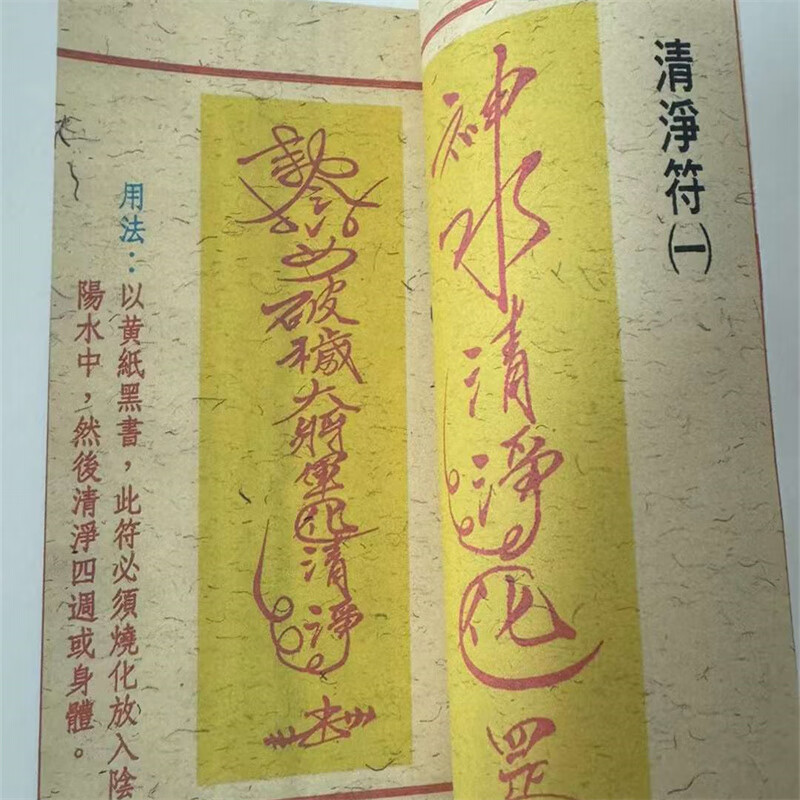 清淨符㈠
神水清淨化罡
勅令 破穢大將軍 化清淨
用法：以黄紙黑書，此符必須燒化放入陰
陽水中，然後清淨四週或身體。